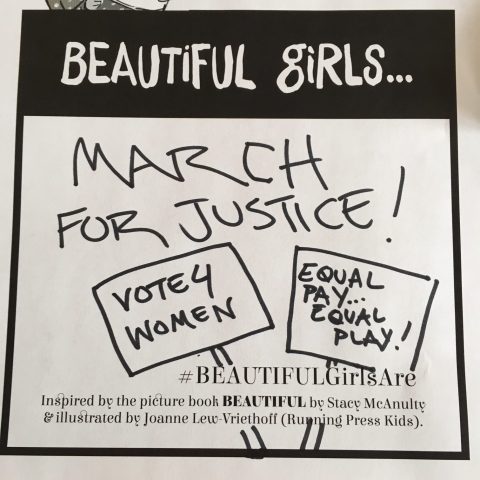 BEAUTiFUL GiRLS...
MARCH
FOR JUSTICE!
VOTE4
WOMEN
EQUAL
PAY...
EQUAL
PLAY!
#BEAUTIFULGirlsAre
Inspired by the picture book BEAUTIFUL by Stacy McAnulty
& illustrated by Joanne Lew-Vriethoff (Running Press Kids).